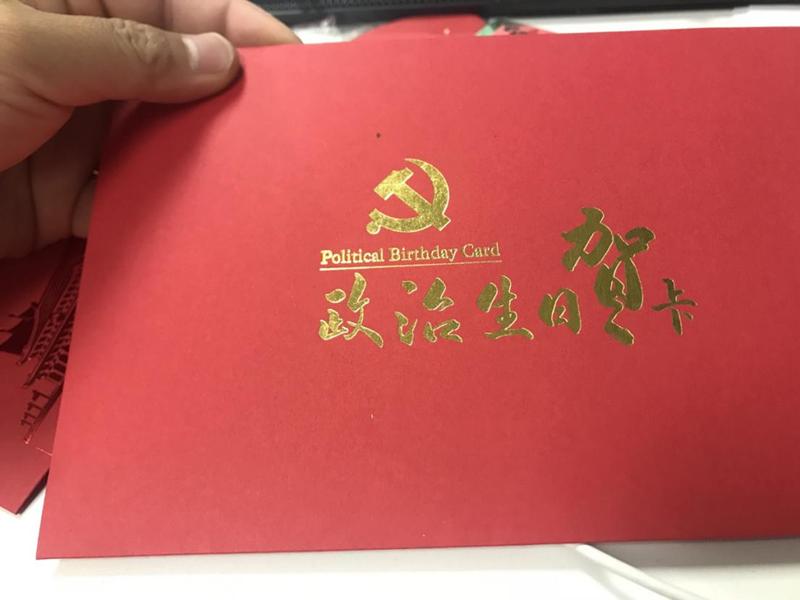 Political Birthday Card
政治生日贺卡